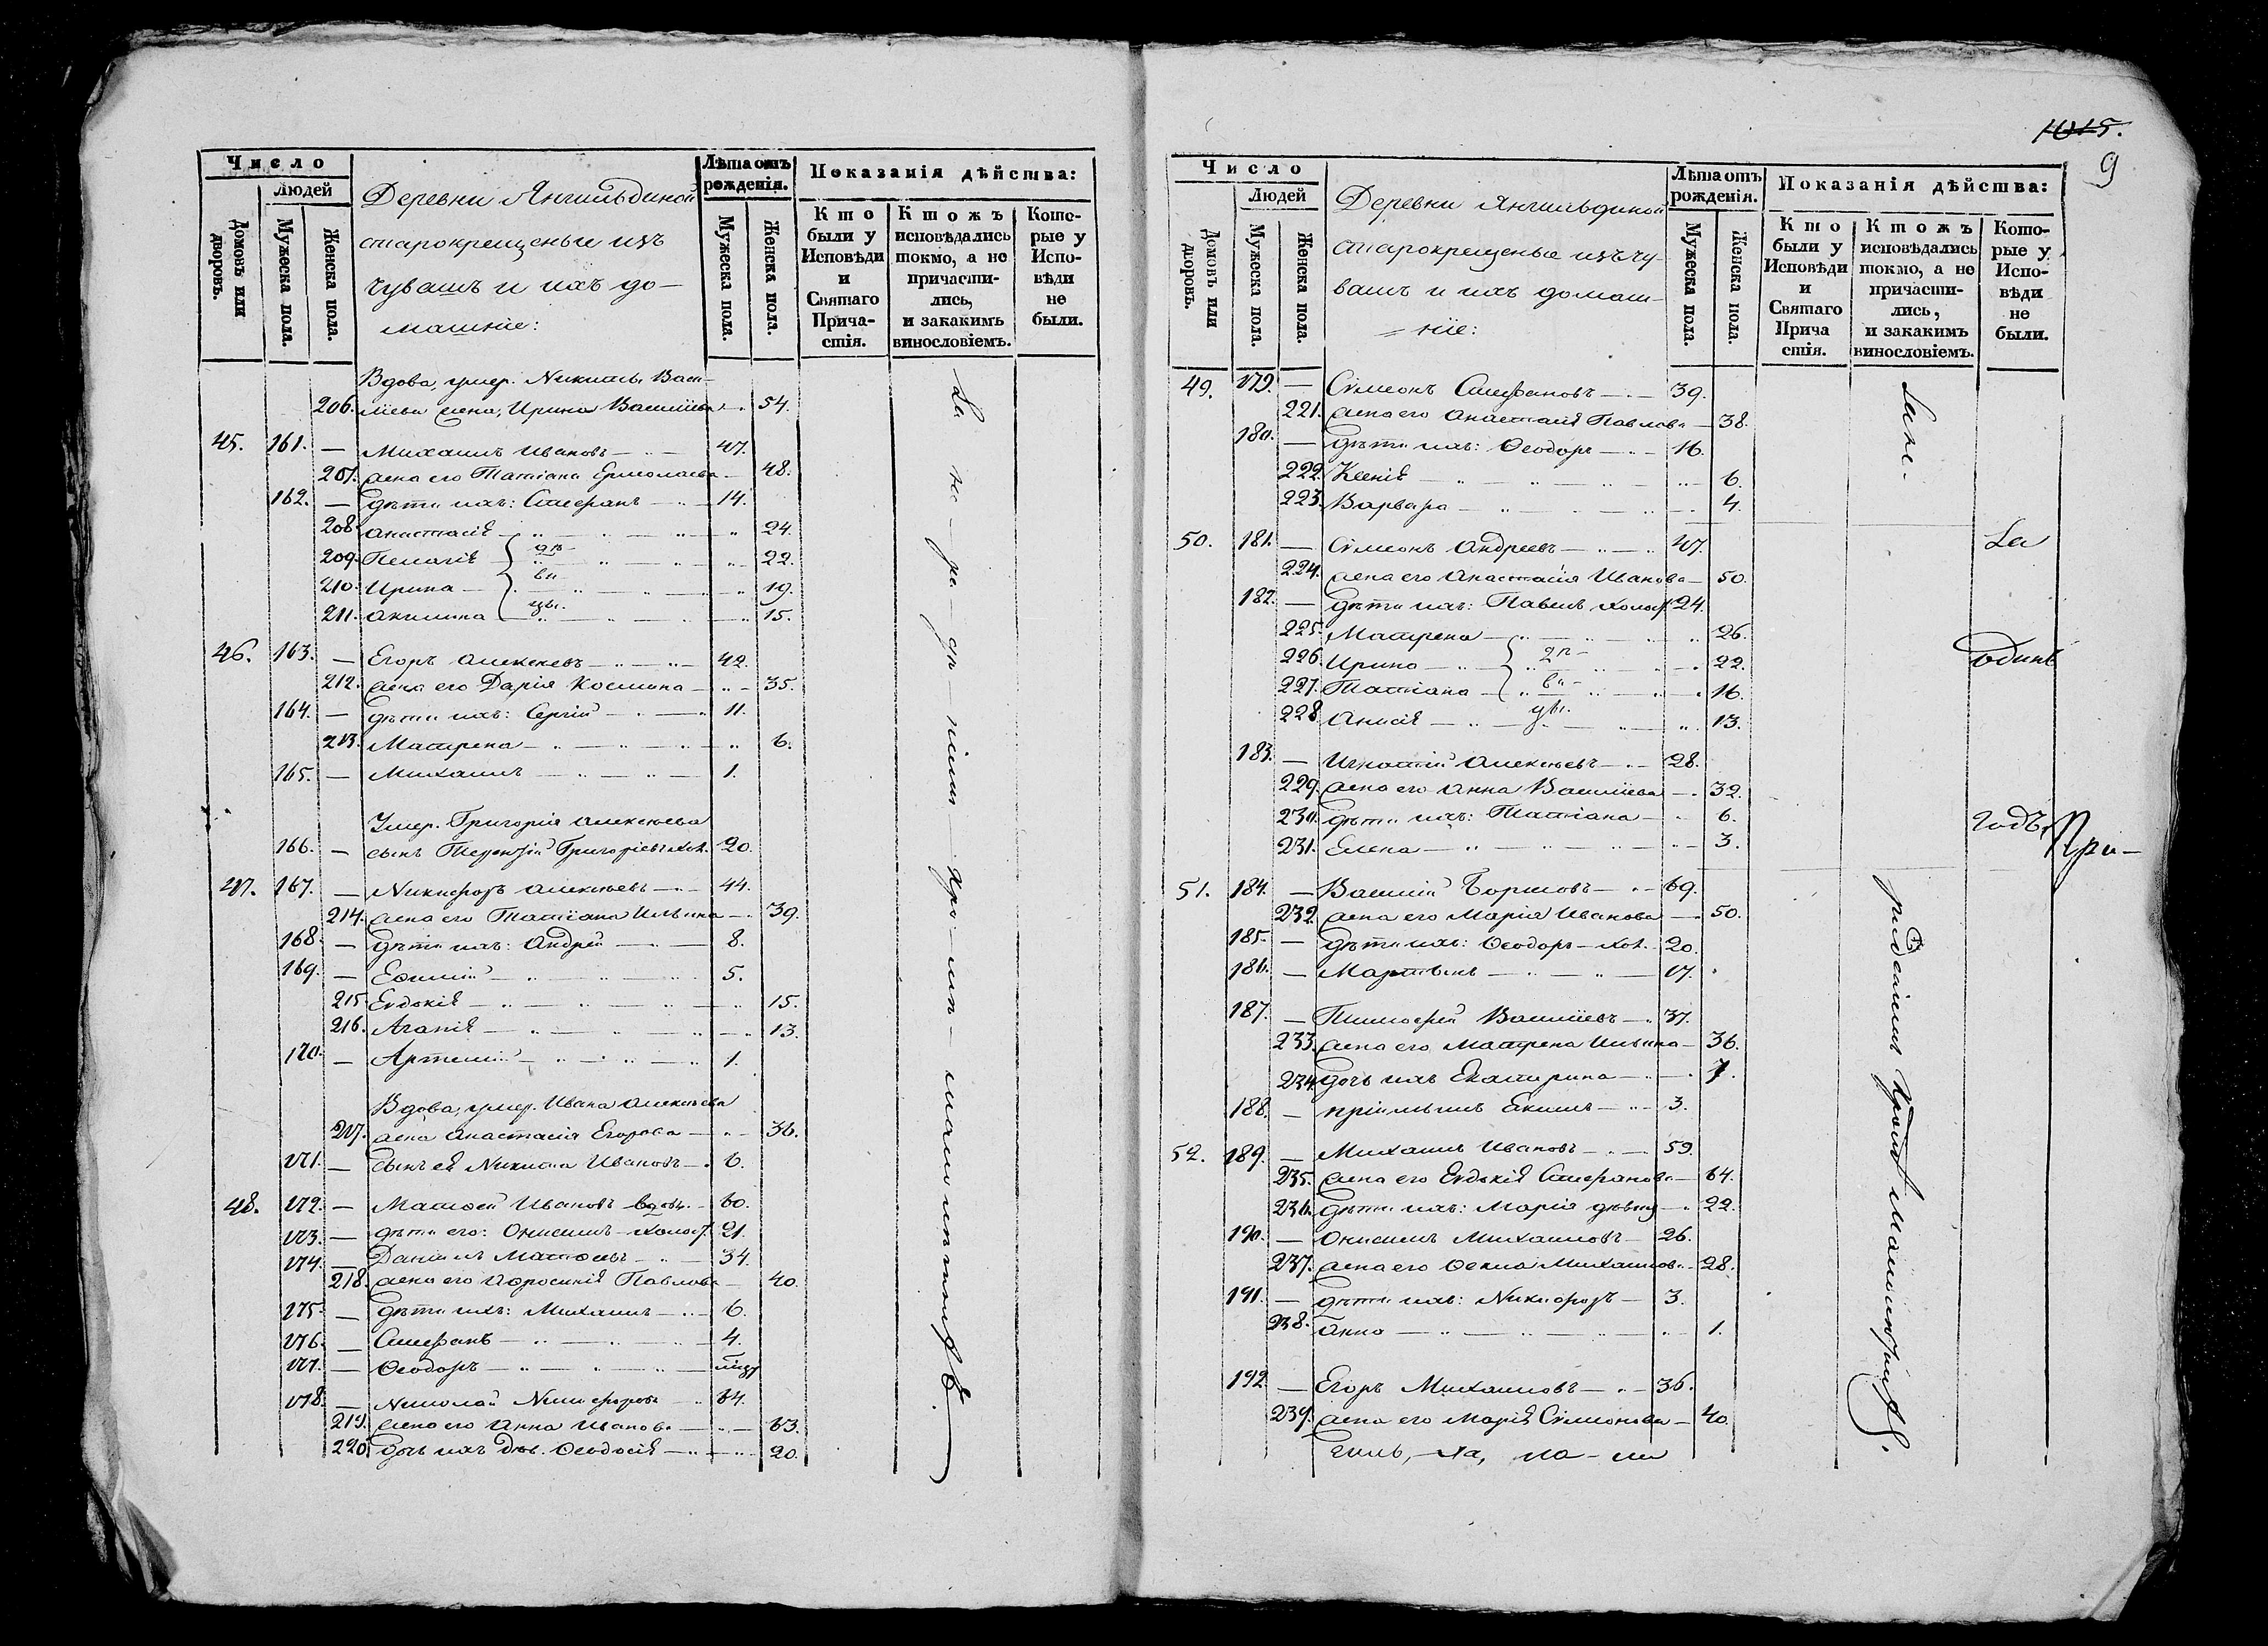 Число
Людей
Домовъ или дворовъ.
Мужеска пола.
Женска пола.
Деревни Янгильдиной
старокрещеные изъ
Чувашъ и ихъ до-
машніе:
Лѣта отъ рожденія.
Мужеска пола.
Женска пола.
Показанія дѣйства:
Кто были у Исповѣди и Святаго Прича-стія.
Ктожъ исповѣдались токмо, а не причасти-лись, и закакимъ винословіемъ.
Кото-рые у Испо-вѣди не были.
Вдова, умер. Никиты Васи-
206. ліева жена, Ирина Васильева 54.
45. 161. — Михаилъ Ивановъ — 47.
207. жена его Татіана Ермолаева — 48.
162. — дѣти ихъ: Стефанъ — 14.
208. Анастасія — 24.
209. Пелагія — дѣ- 22.
210. Ирина — ви- 19.
211. Акилина — цы. 15.
46. 163. — Егоръ Алексеевъ — 42.
212. жена его Дарія Космина — 35.
164. — дѣти ихъ: Сергій — 11.
213. Матрена — 6.
165. — Михаилъ — 1.
Умер. Григорія Алексѣева
166. — сынъ Терентій Григорьевъ хол. 20.
47. 167. — Никифоръ Алексѣевъ — 44.
214. жена его Татіана Ильина — 39.
168. — дѣти ихъ: Андрей — 8.
169. — Ефимій — 5.
215. Евдокія — 15.
216. Агапія — 13.
170. — Артемій — 1.
Вдова, умер. Ивана Алексѣева
217. жена Анастасія Егорова — 36.
171. — сынъ ея Никита Ивановъ — 6.
48. 172. — Матѳей Ивановъ вдов. — 60.
173. — дѣти его: Онисимъ — холост 21.
174. — Даніилъ Матѳеевъ — 34.
218. жена его Ефросинія Павлова — 40.
175. — дѣти ихъ: Михаилъ — 6.
176. — Стефанъ — 4.
177. — Ѳеодоръ —
178. — Николай Никифоровъ — 64.
219. жена его Анна Иванова — 63.
220. дочь ихъ дѣв. Ѳеодосія — 20.
За не-ра-дѣ-ніемъ
1015.
9
Число
Людей
Домовъ или дворовъ.
Мужеска пола.
Женска пола.
Деревни Янгильдиной
старокрещеные изъ чу-
вашъ и ихъ домаш-
ніе:
Лѣта отъ рожденія.
Мужеска пола.
Женска пола.
Показанія дѣйства:
Кто были у Исповѣди и Святаго Прича стія.
Ктожъ исповѣдались токмо, а не причасти-лись, и закакимъ винословіемъ.
Кото-рые у Испо-вѣди не были.
49. 179. — Сѵмеонъ Стефановъ — 39.
221. жена его Анастасія Павлова — 38.
180. — дѣти ихъ: Ѳеодоръ — 16.
222. Ксенія — 6.
223. Варвара — 4.
50. 181. — Сѵмеонъ Андреевъ — 47.
224. жена его Анастасія Иванова — 50.
182. — дѣти ихъ: Павелъ холост. 24.
225. Матрена — 26.
226. Ирина — дѣ- 22.
227. Татіана — ви- 16.
228. Анисія — цы. 13.
183. — Игнатій Алексѣевъ — 28.
229. жена его Анна Васильева — 32.
230. дѣти ихъ: Татіана — 6.
231. Елена — 3.
За
одинъ
годъ
При-
51. 184. — Василій Борисовъ — 69.
232. жена его Марія Иванова — 50.
185. — дѣти ихъ: Ѳеодоръ — хол. 20.
186. — Мартинъ — 17.
187. — Тимофей Васильевъ — 37.
233. жена его Матрена Ильина — 36.
234. дочь ихъ Екатерина — 7.
188. — пріимышъ Екимъ — 3.
52. 189. — Михаилъ Ивановъ — 59.
235. жена его Евдокія Стефанова — 64.
236. дѣти ихъ: Марія дѣвица — 22.
190. — Онисимъ Михаиловъ — 26.
237. жена его Ѳекла Михайлова — 28.
191. — дѣти ихъ: Никифоръ — 3.
238. Анна — 1.
192. — Егоръ Михаиловъ — 36.
239. жена его Марія Сѵмеонова — 40.